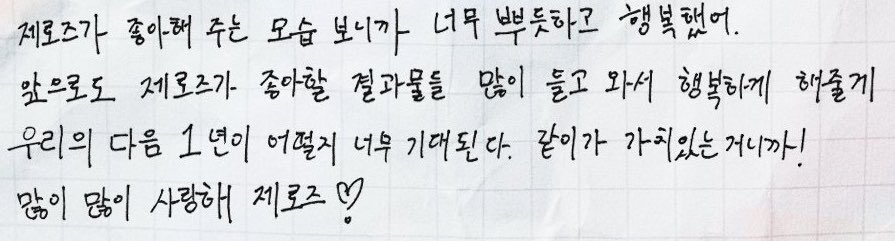 제로즈가 좋아해 주는 모습 보니까 너무 뿌듯하고 행복했어.
앞으로도 제로즈가 좋아할 결과물들 많이 들고 와서 행복하게 해줄게
우리의 다음 1년이 어떨지 너무 기대된다. 같이가 가치있는거니까!
많이 많이 사랑해 제로즈♡